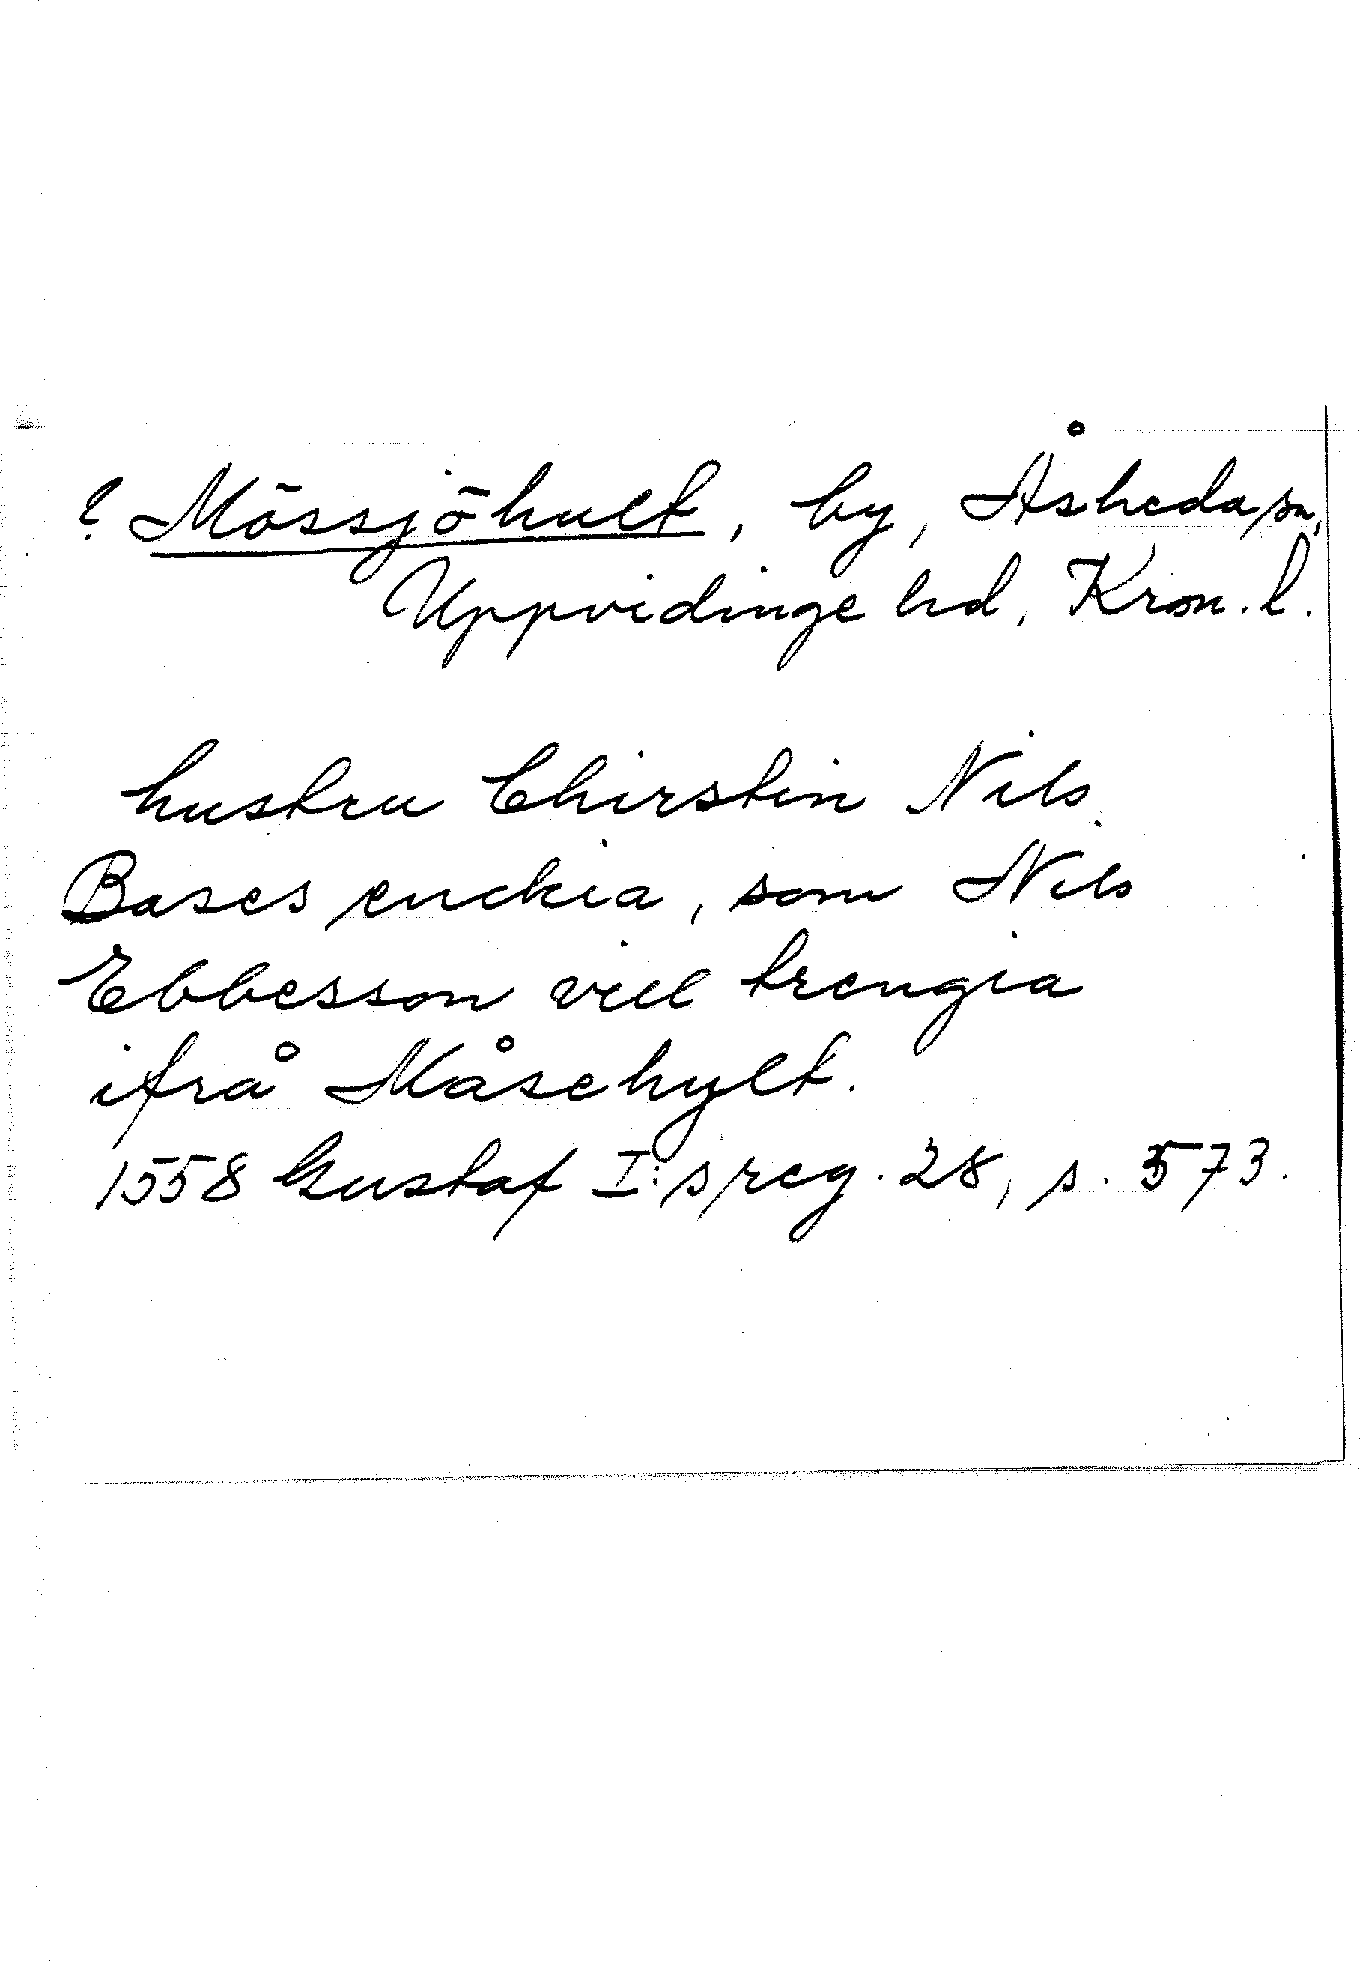 ? Mössjöhult, by, Åsheda sn,
Uppvidinge hd, Kron. l.
hustru Chirstin Nils
Bases enckia, som Nils
Ebbesson vill trengia
ifrå Måsehylt.
1558 Gustaf I:s reg. 28, s. 573.